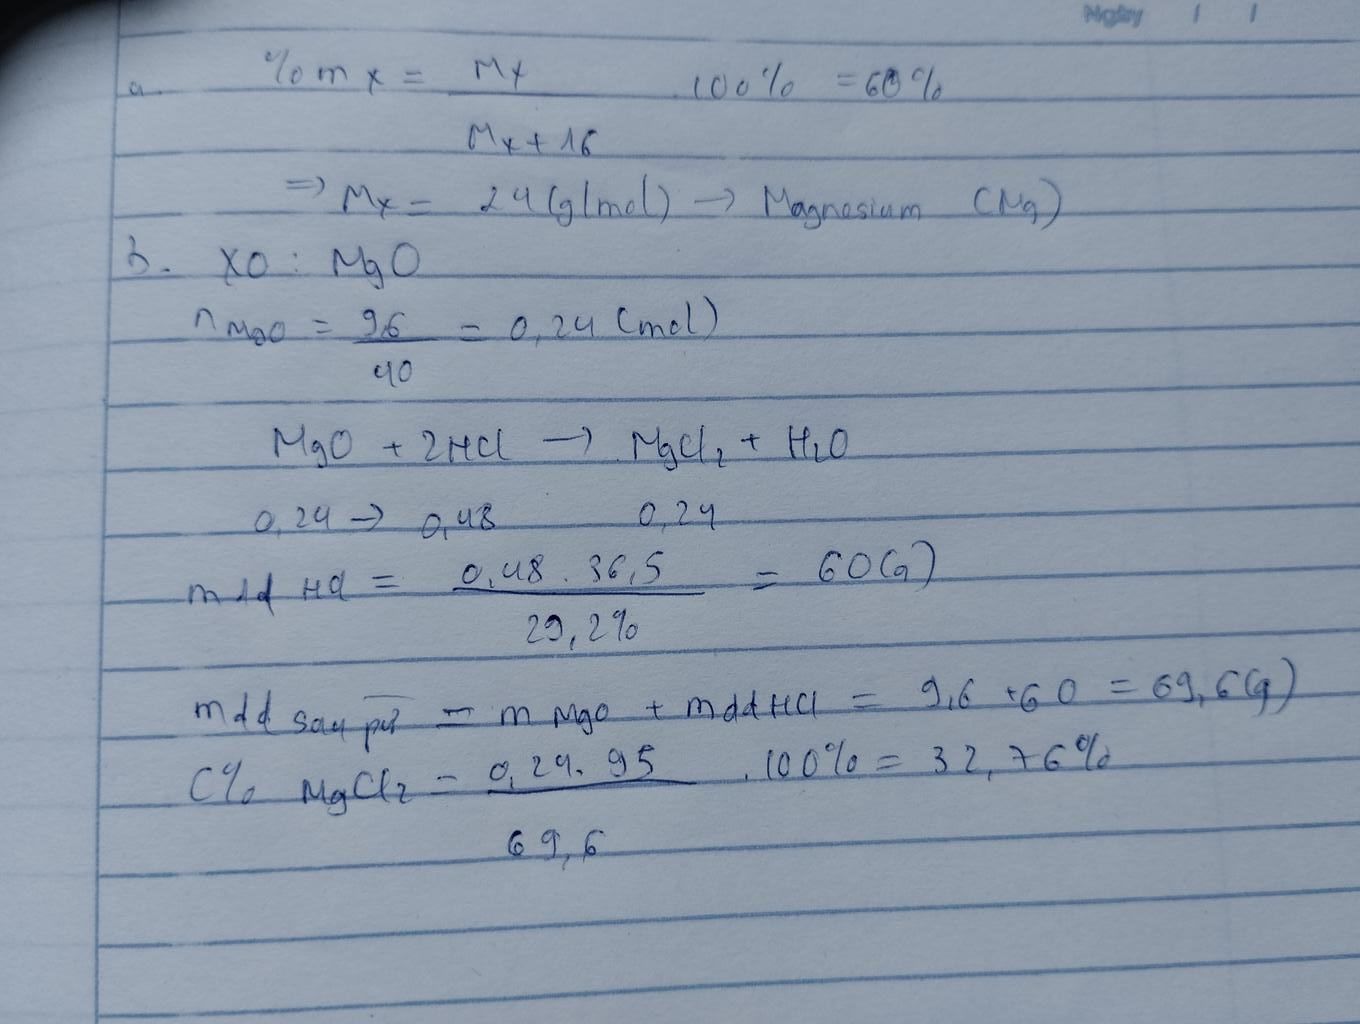 Ngày / /
a. %mX = MX/(MX + 16) . 100% = 60%
=> MX = 24 (g/mol) -> Magnesium (Mg)
b. XO : MgO
nMgO = 9,6/40 = 0,24 (mol)
MgO + 2HCl -> MgCl2 + H2O
0,24 -> 0,48 0,24
mdd HCl = 0,48 . 36,5/29,2% = 60(g)
mdd sau pư = m MgO + mdd HCl = 9,6 + 60 = 69,6(g)
C% MgCl2 = 0,24 . 95/69,6 . 100% = 32,76%